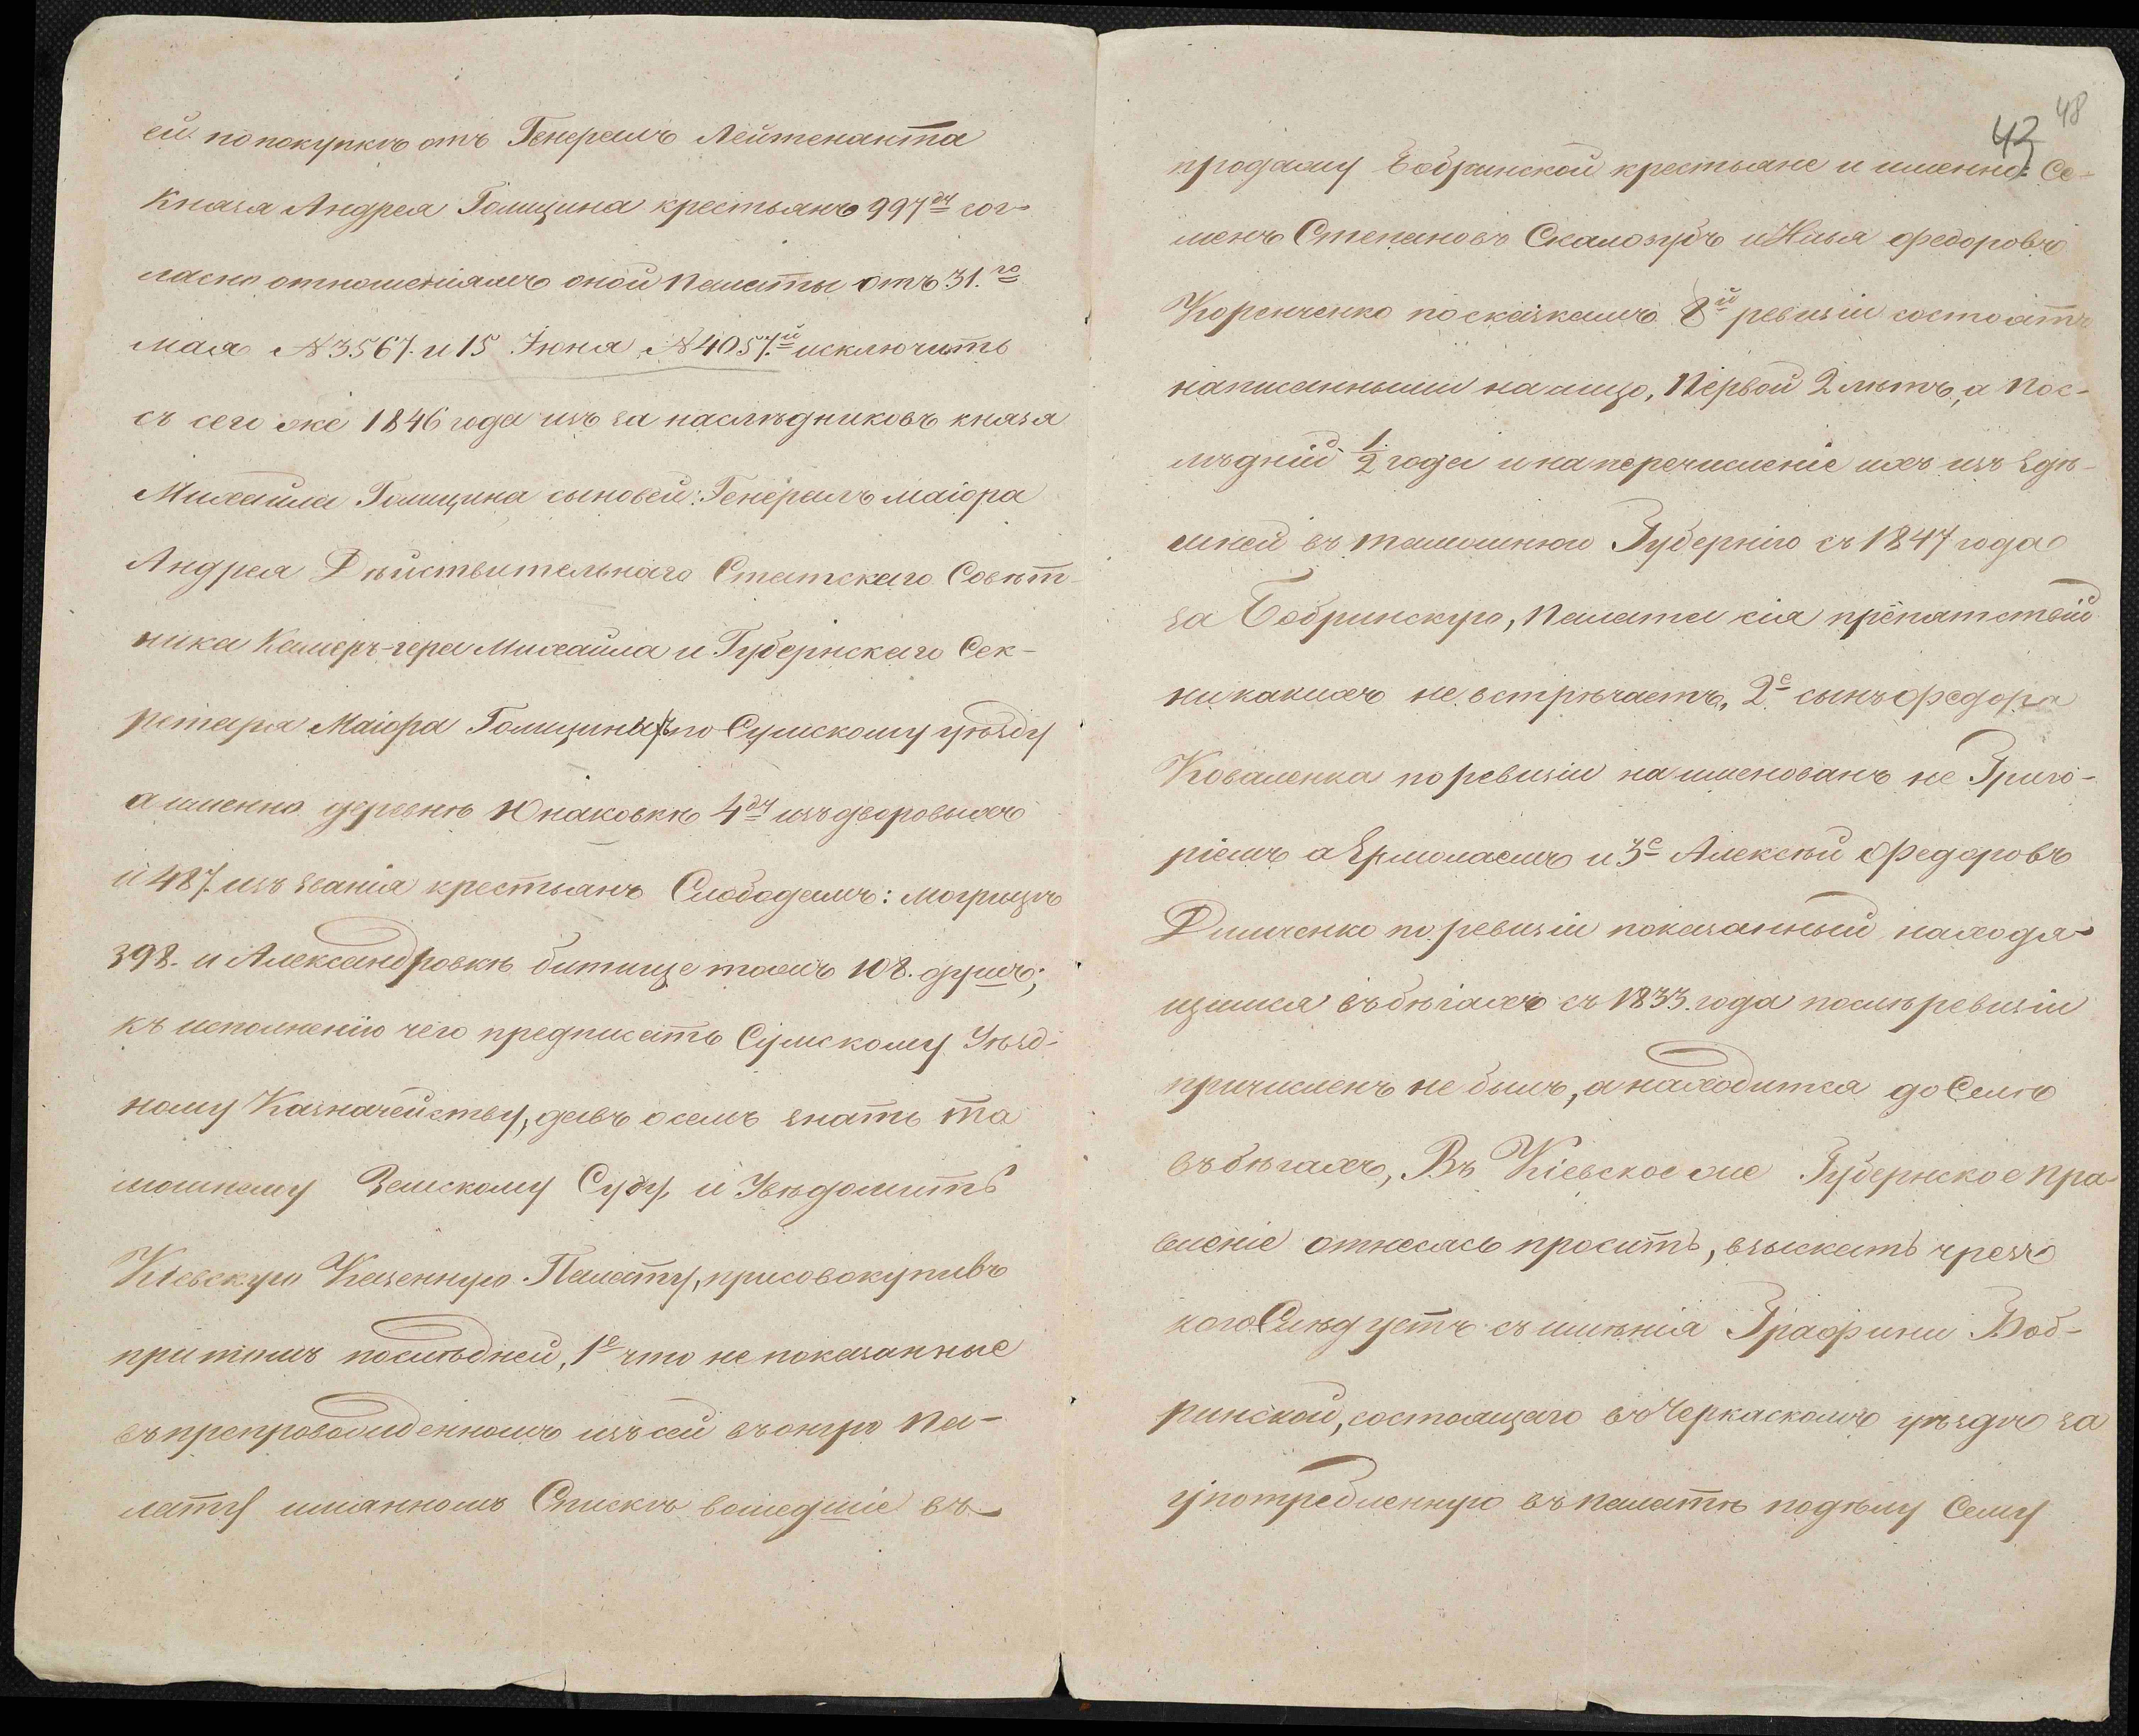 ей по покупкѣ отъ Генералъ Лейтенанта
Князя Андрея Голицина крестьянъ 997 ду сог-
ласно отношеніямъ оной Палаты отъ 31.го
мая №3567. и 15 Іюня №4057.й исключить
съ сего же 1846 года изъ за наслѣдниковъ князя
Михаила Голицина сыновей: Генералъ маіора
Андрея Дѣйствительнаго Статскаго Совѣт-
ника Камеръ-гера Михаила и Губернскаго Сек-
ретаря Маіора Голициныхъ по Сумскому уѣзду
а именно деревнѣ Юнаковкѣ 4 ду изъ дворовыхъ
и 487. изъ званія крестьянъ Слободамъ: Могрицѣ
398. и Александровкѣ битище тожъ 108. душъ;
къ исполненію чего предписать Сумскому Уѣзд-
ному Казначейству, давъ о семъ знать та
мошнему Земскому Суду, и Увѣдомить
Кіевскую Казенную Палату, присовокупивъ
притомъ послѣдней, 1е что не показанные
въ препровожденномъ изъ сей въ оную Па-
лату имянномъ Спискѣ вошедшіе въ
48
43
продажу Бобринской крестьяне и именно: Се-
менъ Степановъ Скалозубъ и Илья Федоровъ
Коренченко по сказкамъ 8й ревизіи состоятъ
написанными на лицо, Первой 2 лѣтъ, а Пос-
лѣдній 1/2 года и на перечисленіе ихъ изъ здѣ-
шней въ тамошнюю Губернію съ 1847 года
за Бобринскую, Палата сія препятствій
никакихъ не встрѣчаетъ, 2е сынъ Федора
Коваленка по ревизіи наименованъ не Григо-
ріемъ а Ермолаемъ и 3е Алексѣй Федоровъ
Димченко по ревизіи показанный находя-
щимся въ бѣгахъ съ 1833. года послѣ ревизіи
причисленъ не былъ, а находится до Селѣ
въ бѣгахъ, Въ Кіевское же Губернское Пра-
вленіе отнесась просить, взыскать чрезъ
кого Слѣдуетъ съ имѣнія Графини Боб-
ринской, состоящаго въ Черкаскомъ уѣздѣ за
употребленную въ Палатѣ по дѣлу Сему